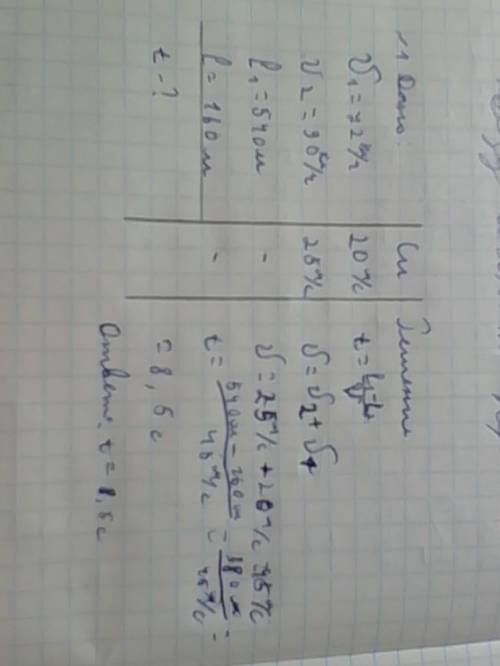 1 Дано:
υ₁ = 72 км/ч
υ₂ = 90 км/ч
l₁ = 540 м
l = 160 м
t - ?
Си
20 м/с
25 м/с
-
-
Решение
t =
υ = υ₂ + υ₁
υ = 25 м/с + 20 м/с 45 м/с
t = 540м - 160м / 45 м/с = 380 м / 45 м/с =
= 8,5 с
Ответ: t = 8,5 с